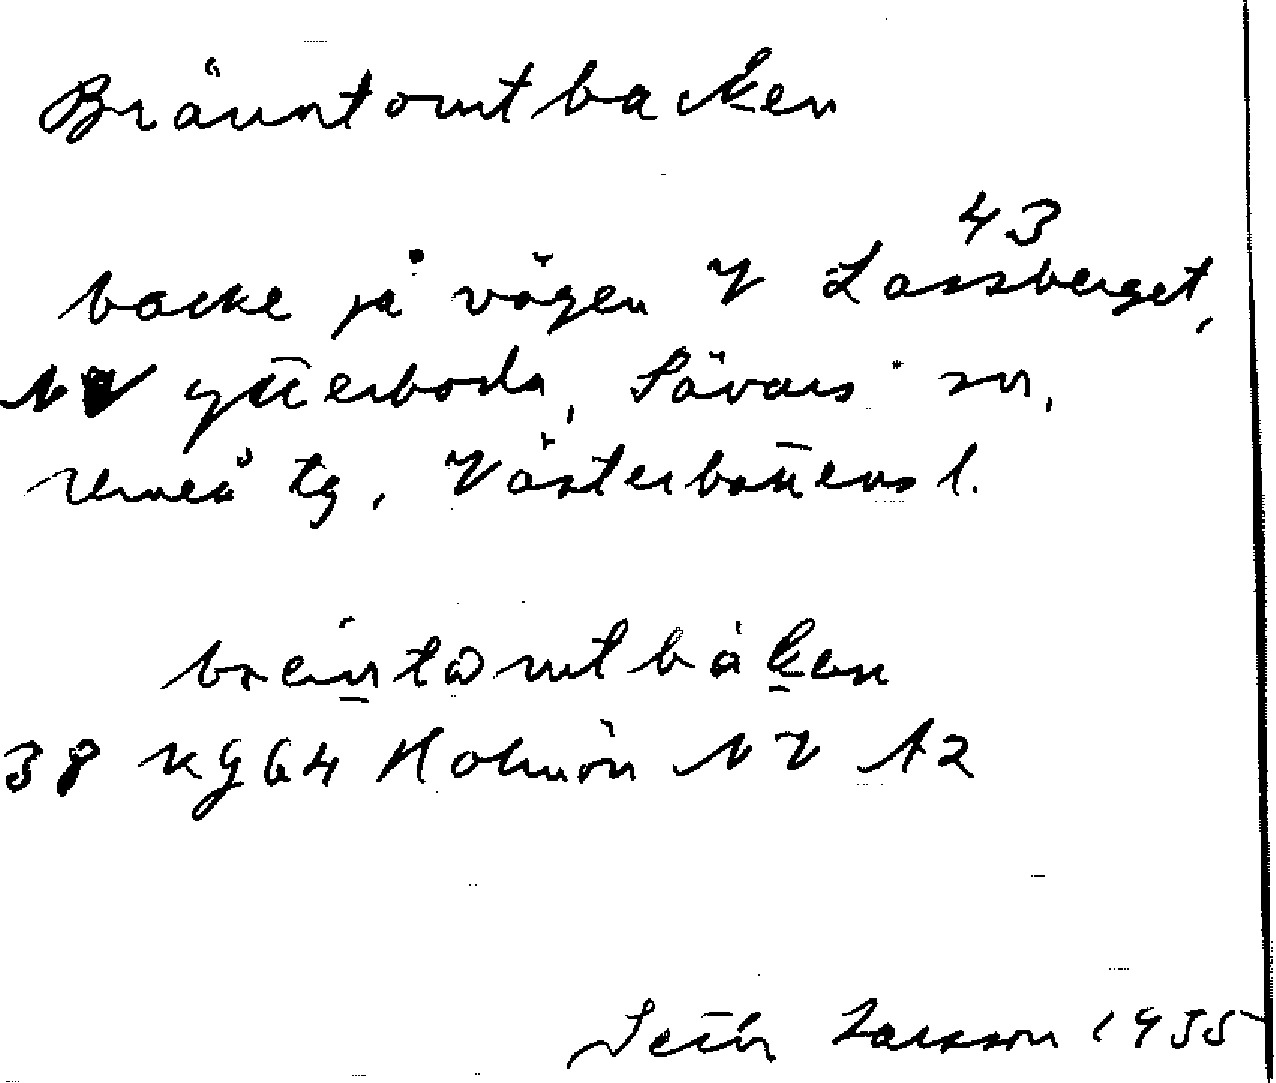 Bränntomtbacken
43
backe på vägen V Lassberget,
NV Ytterboda, Sävars sn,
Umeå tg, Västerbottens l.
bräntomtbaken
38 Kg 64 Holmön NV A2
Larsson 1935